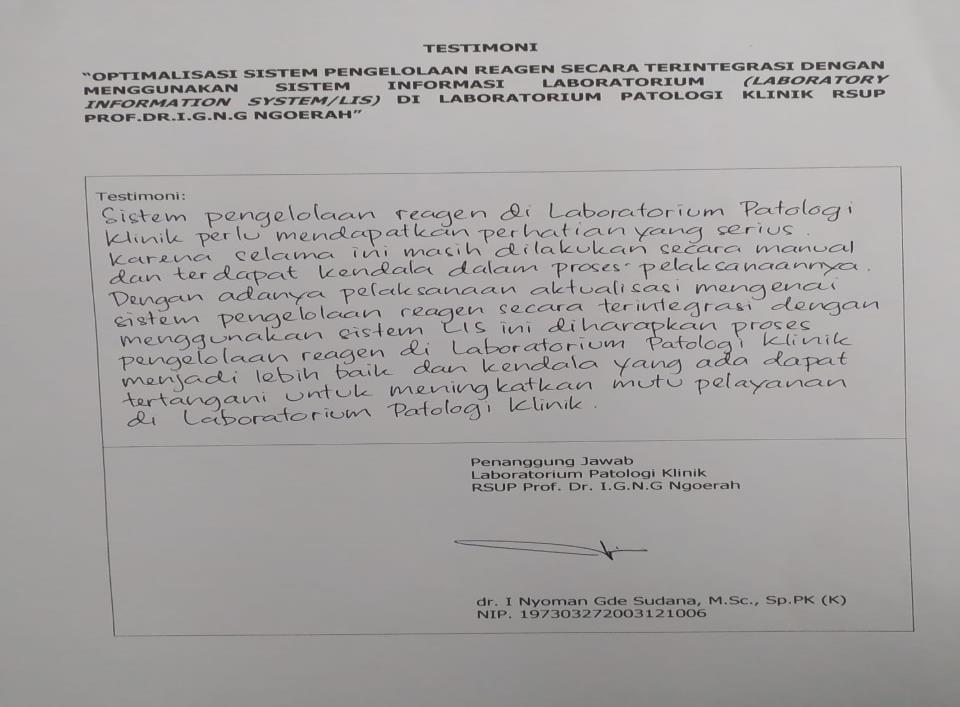 TESTIMONI
"OPTIMALISASI SISTEM PENGELOLAAN REAGEN SECARA TERINTEGRASI DENGAN
MENGGUNAKAN SISTEM INFORMASI LABORATORIUM (LABORATORY
INFORMATION SYSTEM/LIS) DI LABORATORIUM PATOLOGI KLINIK RSUP
PROF.DR.I.G.N.G NGOERAH"
Testimoni:
Sistem pengelolaan reagen di Laboratorium Patologi
Klinik perlu mendapatkan perhatian yang serius.
Karena selama ini masih dilakukan secara manual
dan terdapat kendala dalam proses pelaksanaannya.
Dengan adanya pelaksanaan aktualisasi mengenai
sistem pengelolaan reagen secara terintegrasi dengan
menggunakan sistem LIS ini diharapkan proses
pengelolaan reagen di Laboratorium Patologi Klinik
menjadi lebih baik dan kendala yang ada dapat
tertangani untuk meningkatkan mutu pelayanan
di Laboratorium Patologi Klinik.
Penanggung Jawab
Laboratorium Patologi Klinik
RSUP Prof. Dr. I.G.N.G Ngoerah
dr. I Nyoman Gde Sudana, M.Sc., Sp.PK (K)
NIP. 197303272003121006